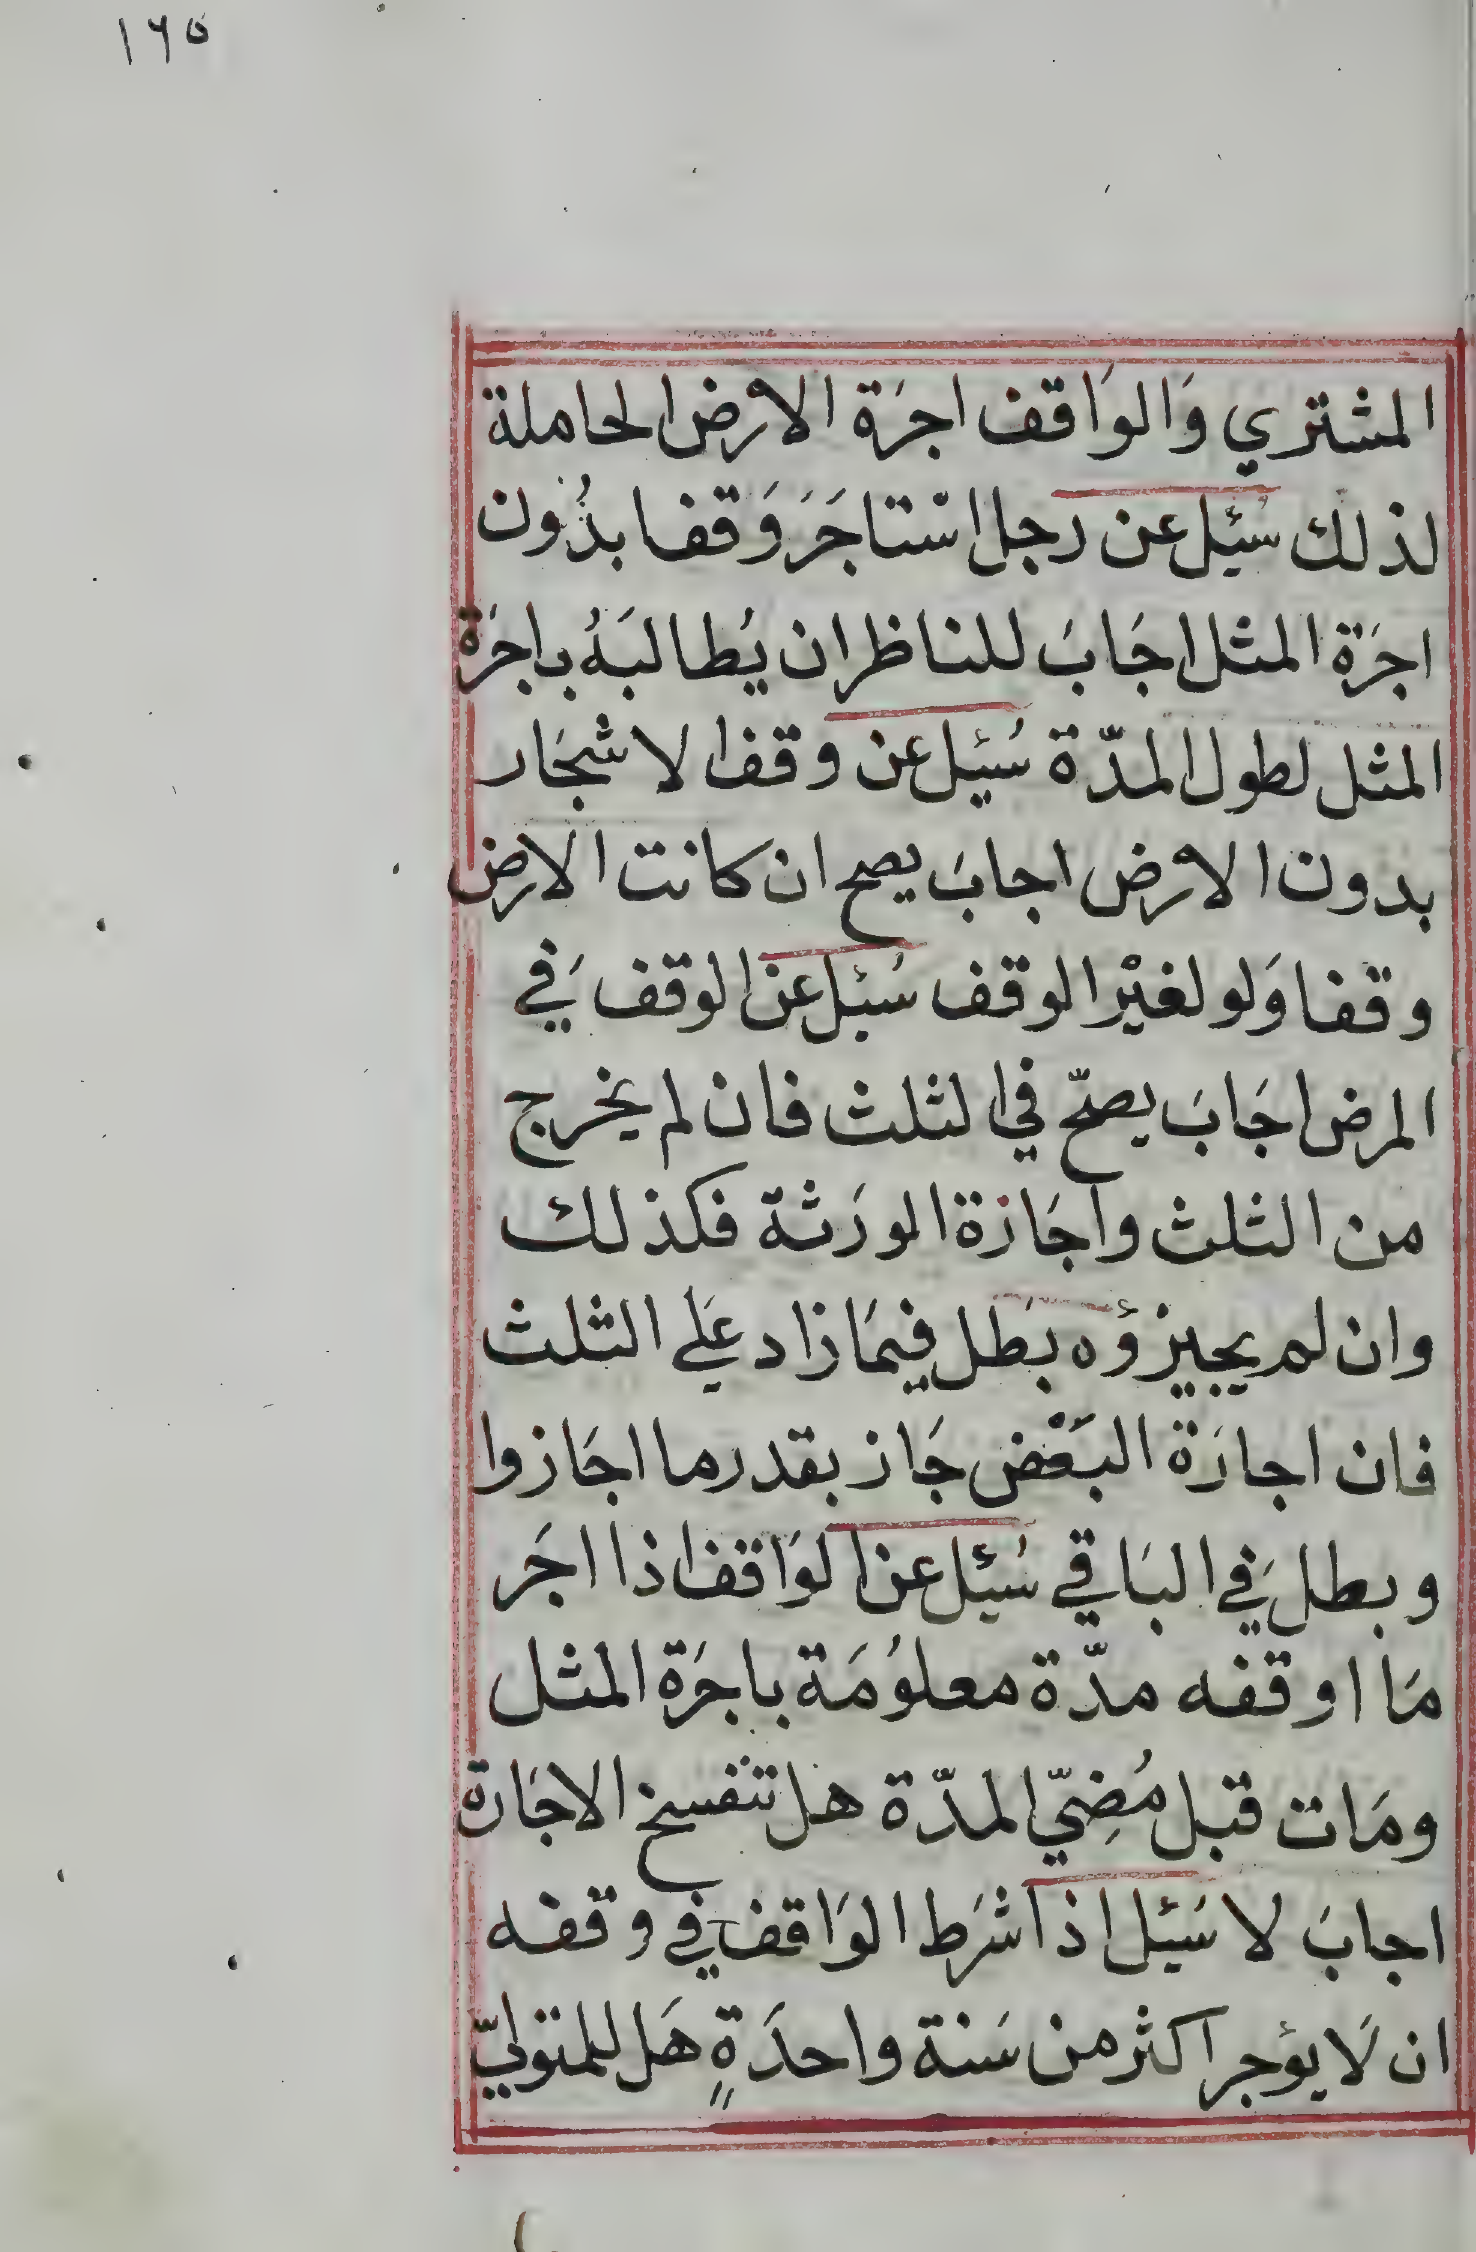 ١٢٥
المشتري وَالوَاقف اجرَة الارض الحاملة
لذلك سُئِل عن رجل استاجَرَ وَقفا بدُون
اجرَة المثل اجَابَ للناظر ان يُطالبَهُ باجرَة
المثل لطول المدّة سُئِل عن وقف الاشجَار
بدون الارض اجابَ يصح ان كانت الارض
وقفا وَلو لغيْر الوقف سُئل عن الوقف في
المرض اجَابَ يصحّ في الثلث فان لم يخرج
من الثلث واجَازة الورَثة فكذلك
وان لم يجيزؤه بَطل فيمَا زاد عَلي الثلث
فان اجازَة البَعْض جَاز بقدر ما اجَازوا
وبطلَ في البَاقي سُئِل عن الوَاقف اذا اجَر
مَا اوقفه مدّة معلوُمَة باجرَة المثل
ومَات قبل مُضِيّ المدّة هل تنفسخ الاجَارة
اجابَ لا سَئِل اذا شرَط الوَاقف في وقفه
ان لَا يؤجر اكثر من سَنة واحدَةٍ هَل للمتوليّ